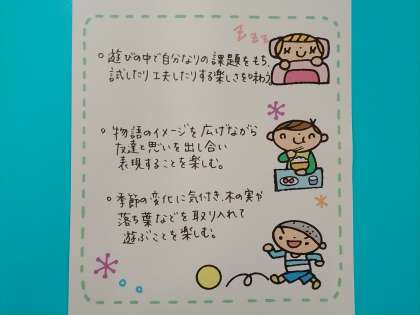 zzz
○ 遊びの中で自分なりの課題をもち、
試したり工夫したりする楽しさを味わう。
○ 物語のイメージを広げながら
友達と思いを出し合い
表現することを楽しむ。
○ 季節の変化に気付き、木の実や
落ち葉などを取り入れて
遊ぶことを楽しむ。